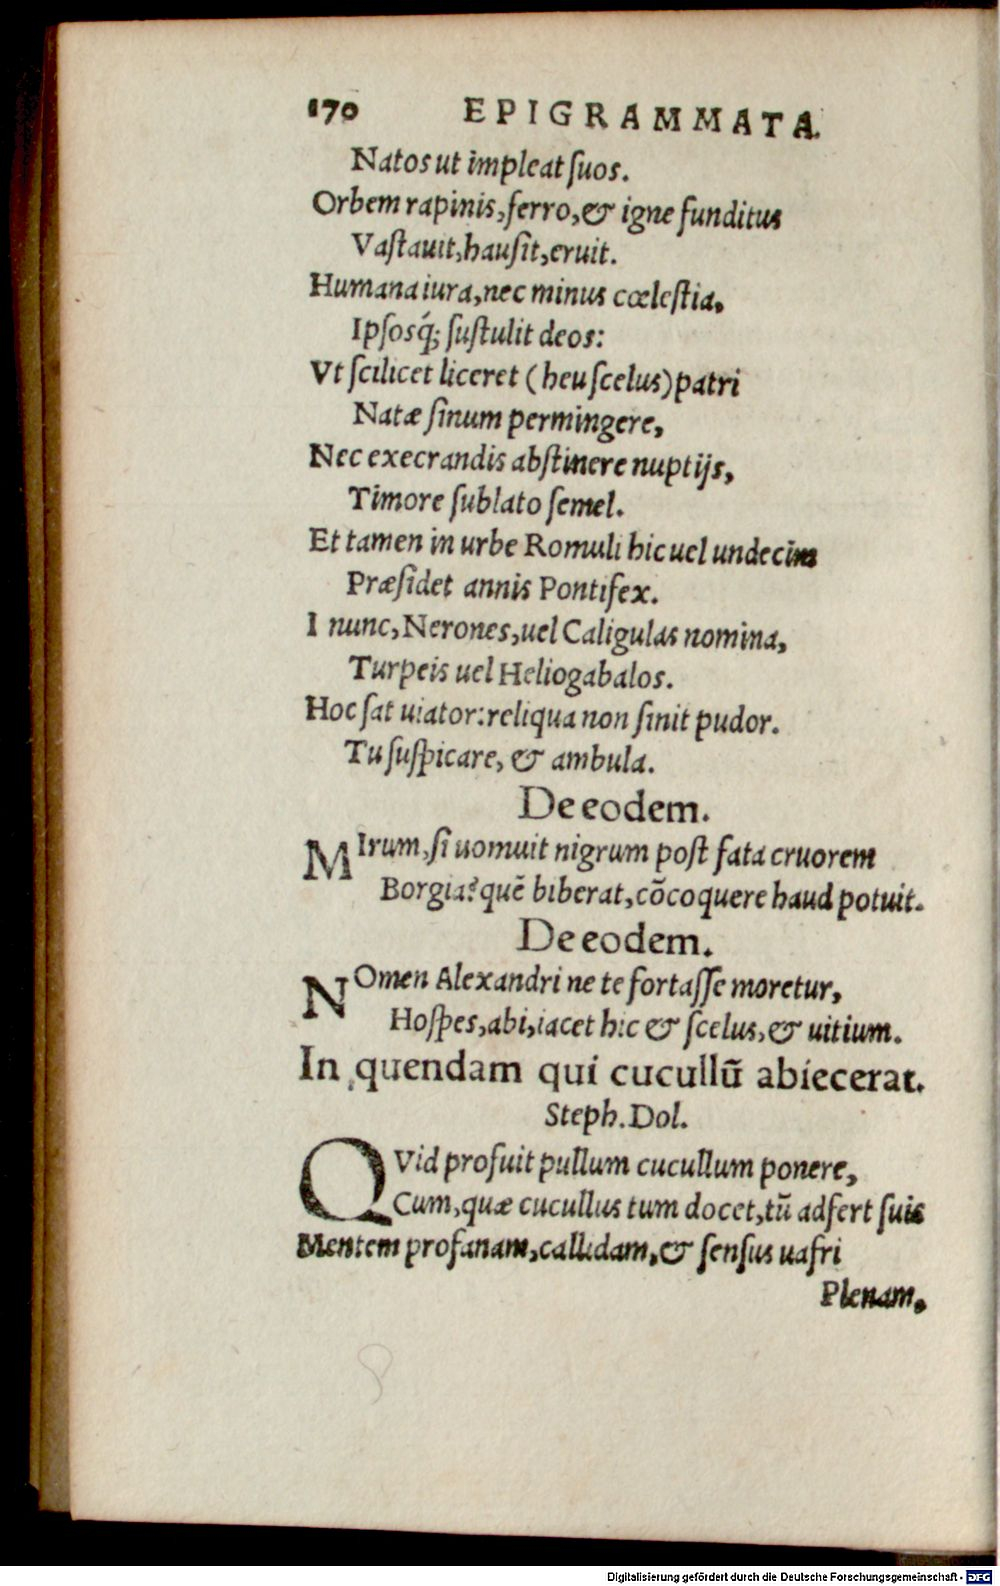 170 EPIGRAMMATA.
Natos ut impleat ſuos.
Orbem rapinis, ferro, & igne funditus
Vaſtauit, hauſit, eruit.
Humana iura, nec minus cœleſtia,
Ipſosq́; ſuſtulit deos:
Vt ſcilicet liceret (heu ſcelus) patri
Natæ ſinum permingere,
Nec execrandis abſtinere nuptijs,
Timore ſublato ſemel.
Et tamen in urbe Romuli hic uel undecim
Præſidet annis Pontifex.
I nunc, Nerones, uel Caligulas nomina,
Turpeis uel Heliogabalos.
Hoc ſat uiator: reliqua non ſinit pudor.
Tu ſuſpicare, & ambula.
De eodem.
MIrum, ſi uomuit nigrum poſt fata cruorem
Borgia? quẽ biberat, cõcoquere haud potuit.
De eodem.
NOmen Alexandri ne te fortaſſe moretur,
Hoſpes, abi, iacet hic & ſcelus, & uitium.
In quendam qui cucullũ abiecerat.
Steph. Dol.
QVid profuit pullum cucullum ponere,
Cum, quæ cucullus tum docet, tũ adfert ſuis
Mentem profanam, callidam, & ſenſus uafri
Plenam,
Digitalisierung gefördert durch die Deutsche Forschungsgemeinschaft - DFG